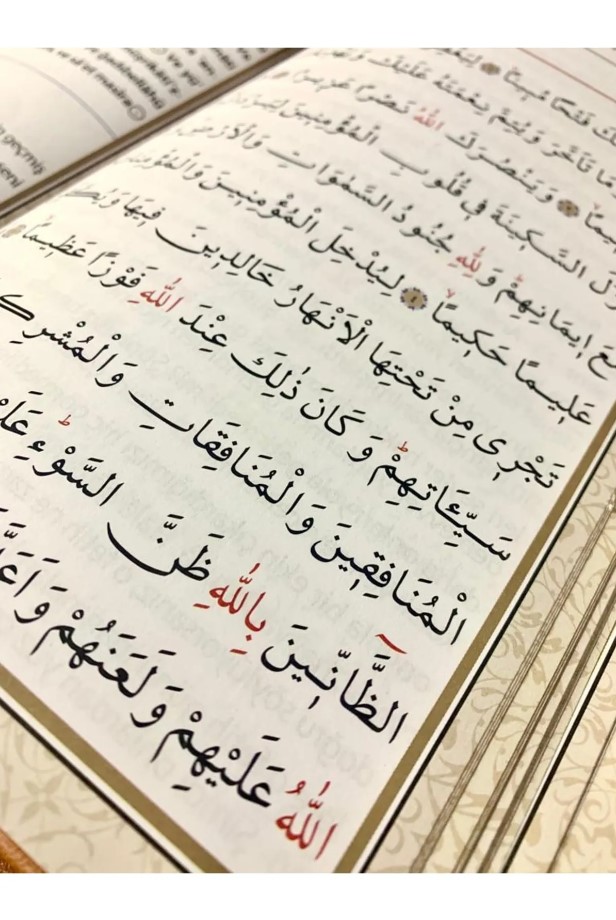 فَتْحًا مُبِينًا
مَا تَاَخَّرَ وَيُتِمَّ نِعْمَتَهُ عَلَيْكَ
وَيَنْصُرَكَ اللّٰهُ نَصْرًا عَزِيزًا
السَّكِينَةَ فِي قُلُوبِ الْمُؤْمِنِينَ
مَعَ اِيمَانِهِمْ وَلِلّٰهِ جُنُودُ السَّمٰوَاتِ وَالْاَرْضِ
عَلِيمًا حَكِيمًا ۙ ﴿٤﴾ لِيُدْخِلَ الْمُؤْمِنِينَ
تَجْرِي مِنْ تَحْتِهَا الْاَنْهَارُ خَالِدِينَ فِيهَا
سَيِّـَٔاتِهِمْ وَكَانَ ذٰلِكَ عِنْدَ اللّٰهِ فَوْزًا عَظِيمًا
الْمُنَافِقِينَ وَالْمُنَافِقَاتِ وَالْمُشْرِك
الظَّٓانِّينَ بِاللّٰهِ ظَنَّ السَّوْءِ عَلَيْ
اللّٰهُ عَلَيْهِمْ وَلَعَنَهُمْ وَاَعَدَّ
geçmiş
seni